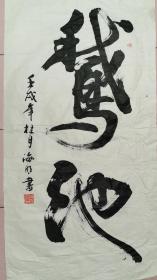 鵝池
壬戌年桂月海明書